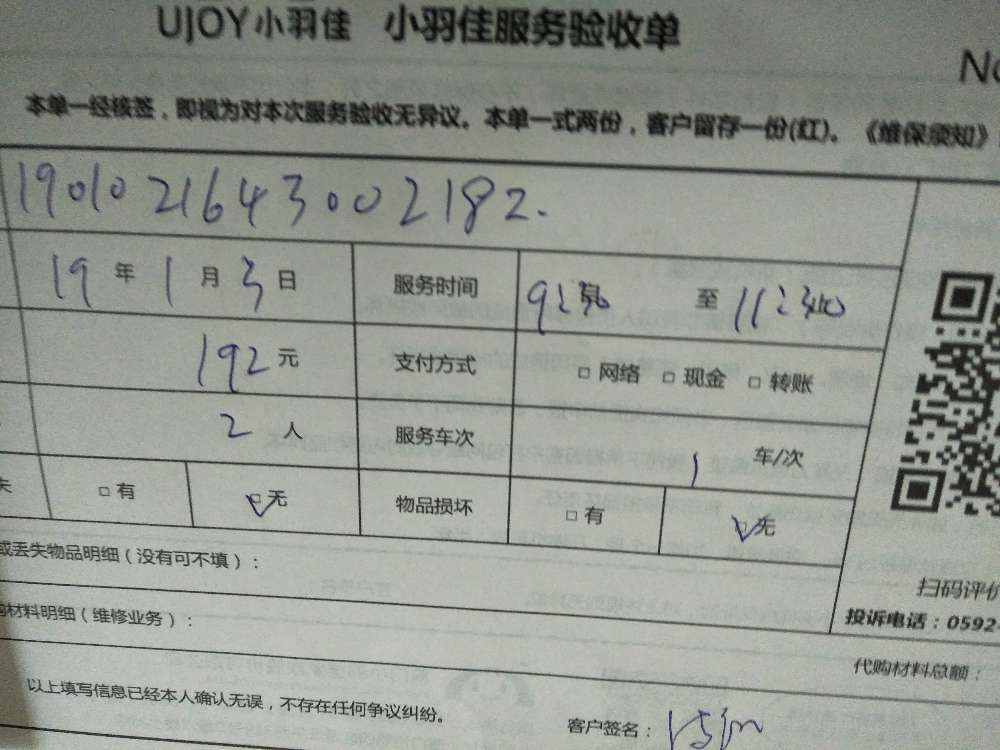 UJOY小羽佳 小羽佳服务验收单
No
本单一经核签，即视为对本次服务验收无异议。本单一式两份，客户留存一份(红)。《维保须知》
1901021643002182.
19年1月3日 服务时间 至
192元 支付方式 □网络 □现金 □转账
2人 服务车次 1 车/次
失 □有 □无 物品损坏 □有 □无
或丢失物品明细（没有可不填）：
扫码评价
购材料明细（维修业务）：
投诉电话：0592-
代购材料总额：
以上填写信息已经本人确认无误，不存在任何争议纠纷。
客户签名：